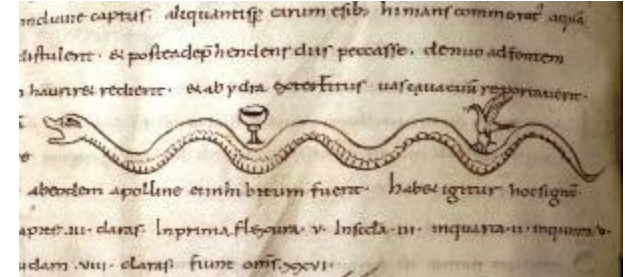 induine captus. aliquantisꝑ earum esib; humanis commorat᷒ aquā
distulerit. & postea dep̄hendens dius peccasse. denuo ad fontem
hauriret redierit. & ab ydra exterritus uas quacuū reportauerit.
e
abeodem apolline etinhibitum fuerit. habet igitur hoc signū.
capite .iii. claras. Inprima flexura .v. Insecda .iii. inquarta .ii. inquinta .v.
udam .viii. claras fiunt om̄s .xxvi.